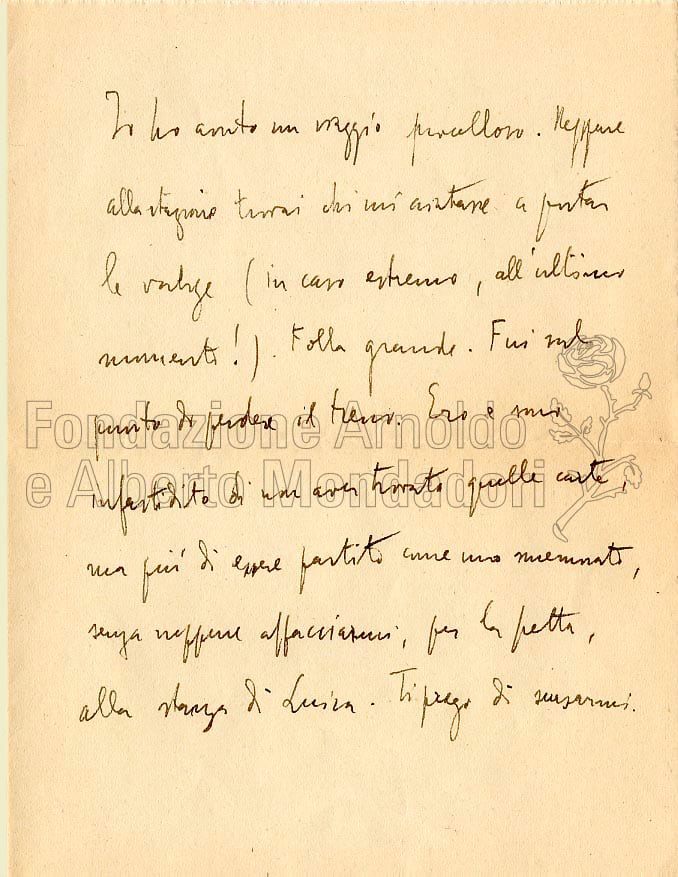 Io ho avuto un viaggio procelloso. Neppure
alla stazione trovai chi mi aiutasse a portar
le valige (in caso estremo, all'ultimo
momento!). Folla grande. Fui sul
punto di perdere il treno. Ero e sono
Fondazione Arnoldo
e Alberto Mondadori
infastidito di non aver trovato quelle carte,
ma più di essere partito come uno smemorato,
senza neppure affacciarmi, per la fretta,
alla stanza di Luisa. Ti prego di scusarmi.